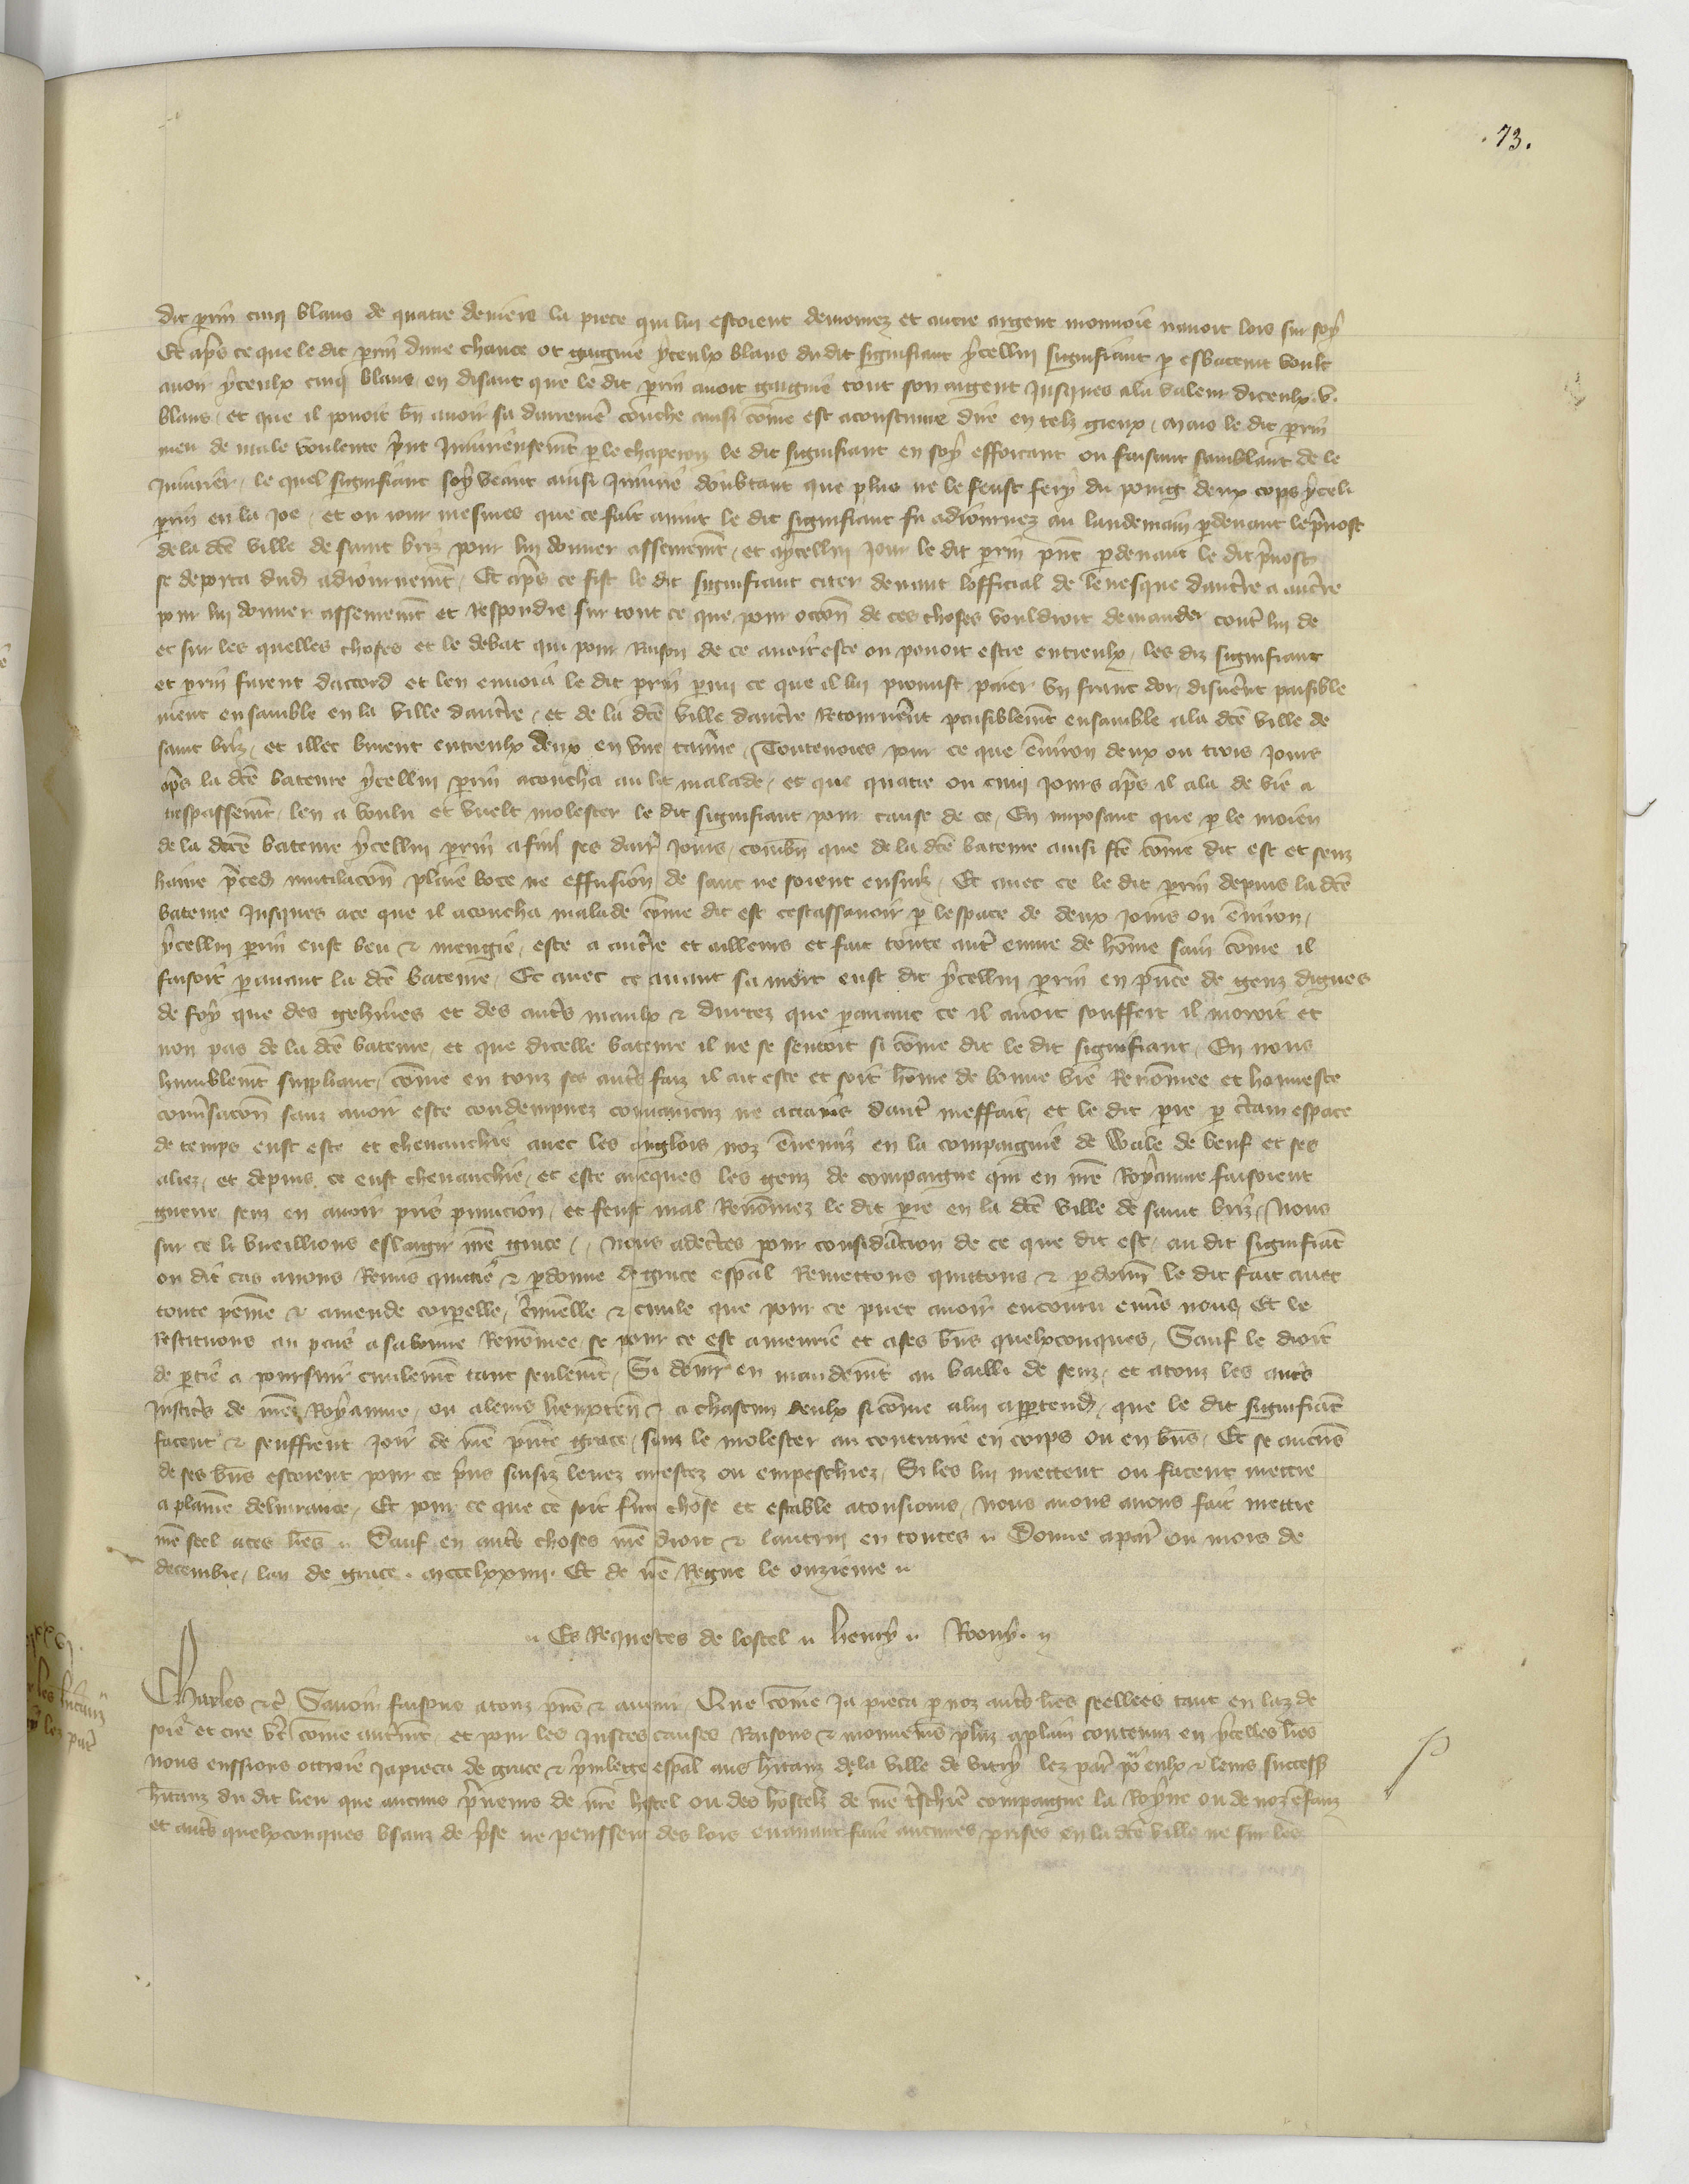 .73.
dit perrin cinq blans de quatre deniers la piece qui lui estoient demorez et autre argent monnoie navoit lors sur soy
Et apres ce que le dit perrin dune chance ot gaignie yceulx blans du dit signifiant ycellui signifiant par esbatement voult
avoir yceulx cinq blans en disant que le dit perrin avoit gaignie tout son argent Jusques a la valeur diceulx .v.
blans et que il povoit bien avoir sa darreniere couche ainsi comme est acoustume dire en telz gieux Mais le dit perrin
meu de male voulente print Injurieusement par le chaperon le dit signifiant en soy efforcant ou faisant samblant de le
Injurier le quel signifiant soy veant ainsi Injurie doubtant que plus ne le feust fery du poing deux cops yceli
perrin en la Joe et ou jour mesmes que ce fait avint le dit signifiant fu adjournez au landemain pardevant le prevost
de la dicte ville de saint briz pour lui donner assentement et a ycellui Jour le dit perrin present pardevant le dit prevost
se deporta dudit adjournement Et apres ce fist le dit signifiant citer devant lofficial de levesque daucerre a aucerre
pour lui donner assentement et Respondre sur tout ce que pour occasion de ces choses vouldroit demander contre lui de
et sur les quelles choses et le debat qui pour Raison de ce avoit este ou povoit estre entreulx les diz signifiant
et perrin furent daccord et len envoia le dit perrin parmi ce que il lui promist paier un franc dor disnerent paisible
ment ensamble en la ville daucerre et de la dicte ville daucerre Retournerent paisiblement ensamble a la dicte ville de
saint briz et illec burent entreulx deux en une taverne Toutevoies pour ce que environ deux ou trois Jours
apres la dicte bateure ycellui perrin acoucha au lit malade et que quatre ou cinq Jours apres il ala de vie a
trespassement len a voulu et vuelt molester le dit signifiant pour cause de ce En imposant que par le moien
de la dicte bateure ycellui perrin a fini ses darreniers Jours combien que de la dicte bateure ainsi faite comme dit est et senz
haine precedent mutilacion plaie boce ne effusion de sanc ne soient ensuiz Et avec ce le dit perrin depuis la dicte
bateure Jusques a ce que il acoucha malade comme dit est cestassavoir par lespace de deux Jours ou environ
ycellui perrin eust beu & mengie este a aucerre et ailleurs et fait toute autre euvre de homme sain comme il
faisoit paravant la dicte bateure Et avec ce avant sa mort eust dit ycellui perrin en presence de genz dignes
de foy que des gehines et des autres maulx & durtez que paravant ce il avoit souffert il moroit et
non pas de la dicte bateure et que dicelle bateure il ne se sentoit si comme dit le dit signifiant En nous
humblement suppliant comme en touz ses autres faiz il ait este et soit homme de bonne vie Renommee et honneste
conversacion sanz avoir este condempnez convaincuz ne actains dautre meffait et le dit perrin par certain espace
de temps eust este et chevauchie avec les anglois noz ennemis en la compaignie de Wale de beuf et ses
aliez et depuis ce eust chevauchie et este avecques les genz de compaigne qui en nostre Royaume faisoient
guerre senz en avoir pris punicion et feust mal Renommez le dit perrin en la dicte ville de saint briz Nous
sur ce li vueillions eslargir nostre grace Nous adecertes pour consideracion de ce que dit est au dit signifiant
ou dit cas avons Remis quictie & pardonne de grace especial Remettons quittons & pardonnons le dit fait avec
toute peine & amende corporelle criminelle & civile que pour ce puet avoir encouru envers nous Et le
Restituons au pais a sa bonne Renommee se pour ce est amenrie et a ses biens quelxconques Sauf le droit
de partie a poursuir civilement tant seulement Si donnons en mandement au bailli de senz et a touz les autres
Justiciers de nostre Royaume ou a leurs lieuxtenans & a chascun deulx si comme a lui appartendra que le dit signifiant
facent & seuffrent Joir de nostre presente grace sanz le molester au contraire en corps ou en biens Et se aucuns
de ses biens estoient pour ce prins saisiz levez arrestez ou empeschiez Si les lui mettent ou facent mettre
a plaine delivrance Et pour ce que ce soit ferme chose et estable a tousjours Nous avons avons fait mettre
nostre seel a ces lettres Sauf en autres choses nostre droit & lautrui en toutes Donne a paris ou mois de
decembre lan de grace mccclxxiiii Et de nostre Regne le onzieme
Es Requestes de lostel henry Roony
Charles etc Savoir faisons a touz presens & avenir Que comme Ja pieca par noz autres lettres seellees tant en laz de
soie et cire vert comme autrement et pour les Justes causes Raisons & mouvemens plus a plain contenuz en ycelles lettres
nous eussions ottroie Ja pieca de grace & privilege especial aus habitanz de la ville de vitry lez paris pour eulx & leurs successeurs
habitanz du dit lieu que aucuns preneurs de nostre hostel ou des hostelz de nostre treschiere compaigne la Royne ou de noz enfanz
et autres quelxconques usanz de prise ne peussent des lors en avant faire aucunes prises en la dicte ville ne sur les